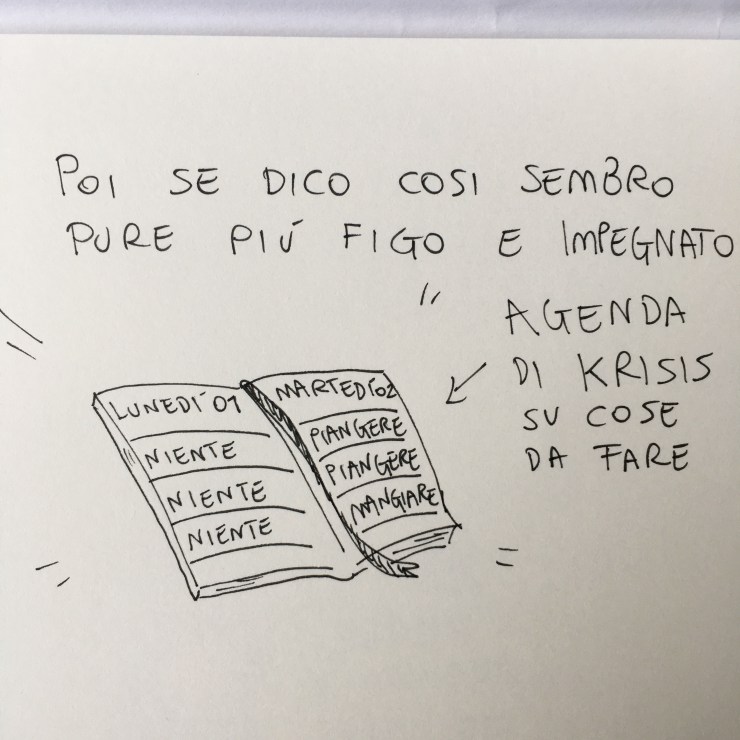 POI SE DICO COSI SEMBRO
PURE PIÚ FIGO E IMPEGNATO
AGENDA
DI KRISIS
SU COSE
DA FARE
LUNEDÍ 01
NIENTE
NIENTE
NIENTE
MARTEDÍ 02
PIANGERE
PIANGERE
MANGIARE